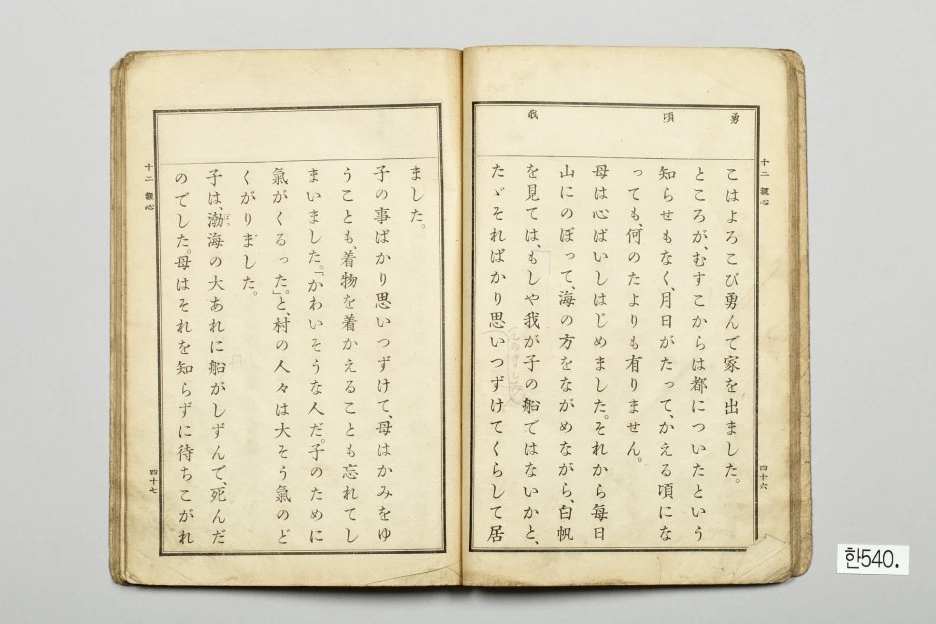 勇
頃
我
十二 親心
四十六
こはよろこび勇んで家を出ました。
ところが、むすこからは都についたという
知らせもなく、月日がたって、かえる頃にな
っても、何のたよりも有りません。
母は心ばいしはじめました。それから毎日
山にのぼって、海の方をながめながら、白帆
を見ては、もしや我が子の船ではないかと、
たゞそればかり思いつずけてくらして居
ました。
子の事ばかり思いつずけて、母はかみをゆ
うことも、着物を着かえることも忘れてし
まいました。「かわいそうな人だ。子のために
氣がくるった。」と、村の人々は大そう氣のど
くがりました。
子は、渤海の大あれに船がしずんで、死んだ
のでした。母はそれを知らずに待ちこがれ
十二 親心
四十七
한540.